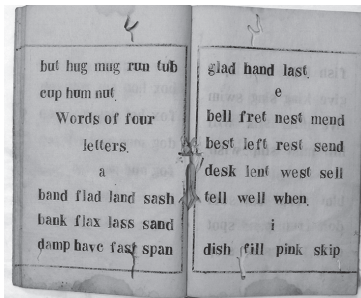 but hug mug run tub
cup hum nut
Words of four
letters.
a
band flad land sash
bank flax lass sand
damp have fast span
glad hand last
e
bell fret nest mend
best left rest send
desk lent west sell
tell well when
i
dish fill pink skip